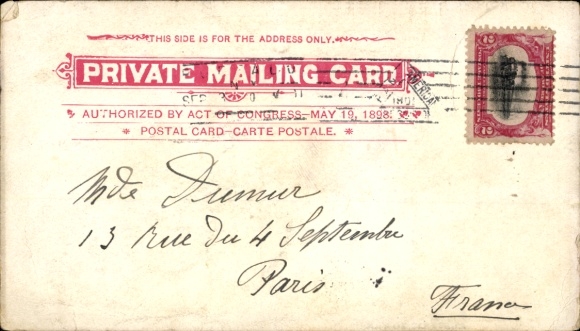 THIS SIDE IS FOR THE ADDRESS ONLY.
PRIVATE MAILING CARD
AUTHORIZED BY ACT OF CONGRESS—MAY 19, 1898.
* POSTAL CARD—CARTE POSTALE. *
Mde Dumur
13 Rue du 4 Septembre
Paris
France